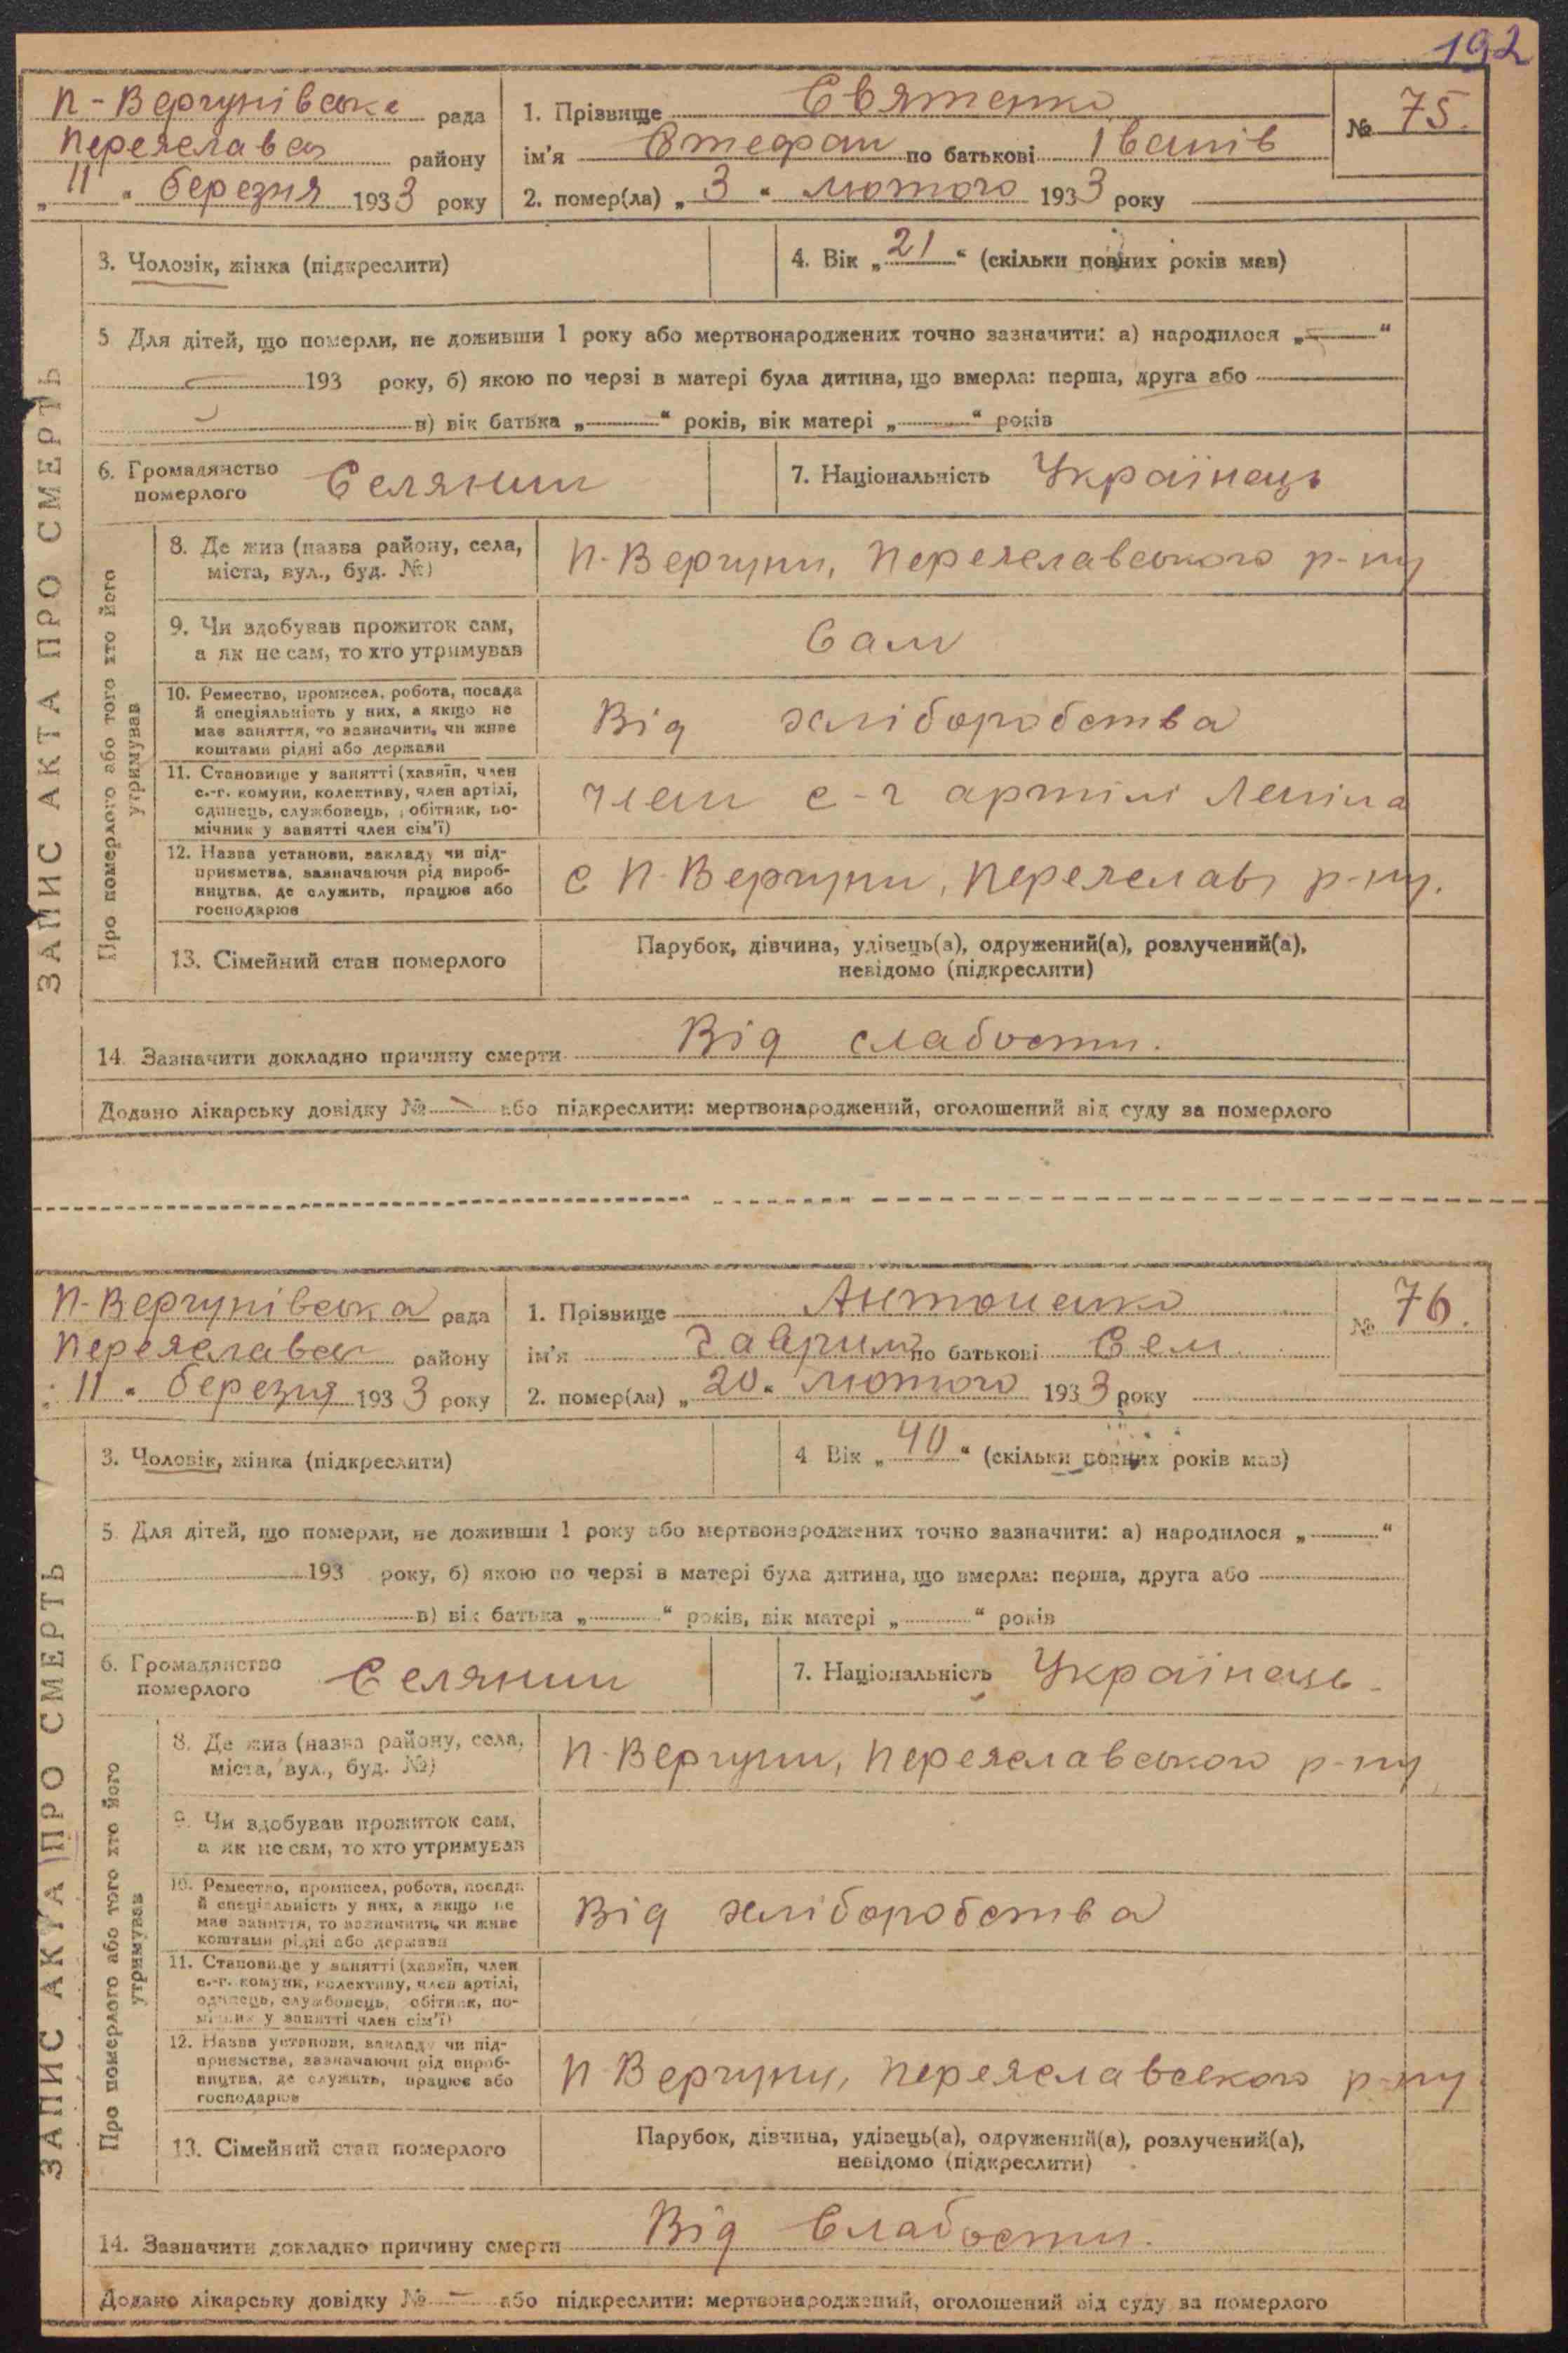 192
П-Вергунівська рада
Переяславськ району
„ 11 “ березня 1933 року
1. Прізвище Святенко
ім'я Стефан по батькові Іванів
2. помер(ла) „ 3 “ лютого 1933 року
№ 75.
ЗАПИС АКТА ПРО СМЕРТЬ
3. Чоловік, жінка (підкреслити)
4. Вік „ 21 “ (скільки повних років мав)
5 Для дітей, що померли, не доживши 1 року або мертвонароджених точно зазначити: а) народилося „ — “
193 року, б) якою по черзі в матері була дитина, що вмерла: перша, друга або
в) вік батька „ “ років, вік матері „ “ років
6. Громадянство
померлого Селянин
7. Національність Українець
Про померлого або того хто його
утримував
8. Де жив (назва району, села,
міста, вул., буд. №)
П-Вергуни, Переяславського р-ну
9. Чи здобував прожиток сам,
а як не сам, то хто утримував
Сам
10. Ремество, промисел, робота, посада
й спеціяльність у них, а якщо не
має заняття, то зазначити, чи живе
коштами рідні або держави
Від хліборобства
11. Становище у занятті (хазяїн, член
с.-г. комуни, колективу, член артілі,
одинець, службовець, обітник, по-
мічник у занятті член сім'ї)
член с-г артілі Леніна
12. Назва установи, закладу чи під-
приємства, зазначаючи рід вироб-
ництва, де служить, працює або
господарює
с П-Вергуни, Переяслав, р-ну.
13. Сімейний стан померлого
Парубок, дівчина, удівець(а), одружений(а), розлучений(а),
невідомо (підкреслити)
14. Зазначити докладно причину смерти Від слабости.
Додано лікарську довідку № — або підкреслити: мертвонароджений, оголошений від суду за померлого
П-Вергунівська рада
Переяславськ району
„ 11 “ березня 1933 року
1. Прізвище Антоненко
ім'я Гаврило по батькові Сем.
2. помер(ла) „ 20 “ лютого 1933 року
№ 76.
ЗАПИС АКТА ПРО СМЕРТЬ
3. Чоловік, жінка (підкреслити)
4 Вік „ 40 “ (скільки повних років мав)
5. Для дітей, що померли, не доживши 1 року або мертвонароджених точно зазначити: а) народилося „ “
193 року, б) якою по черзі в матері була дитина, що вмерла: перша, друга або
в) вік батька „ “ років, вік матері „ “ років
6. Громадянство
померлого Селянин
7. Національність Українець
Про померлого або того хто його
утримував
8. Де жив (назва району, села,
міста, вул., буд. №)
П-Вергуни, Переяславського р-ну
9. Чи здобував прожиток сам,
а як не сам, то хто утримував
10. Ремество, промисел, робота, посада
й спеціяльність у них, а якщо не
має заняття, то зазначити, чи живе
коштами рідні або держави
Від хліборобства
11. Становище у занятті (хазяїн, член
с.-г. комуни, колективу, член артілі,
одинець, службовець, обітник, по-
мічник у занятті член сім'ї)
12. Назва установи, закладу чи під-
приємства, зазначаючи рід вироб-
ництва, де служить, працює або
господарює
П Вергуни, Переяславського р-ну
13. Сімейний стан померлого
Парубок, дівчина, удівець(а), одружений(а), розлучений(а),
невідомо (підкреслити)
14. Зазначити докладно причину смерти Від слабости.
Додано лікарську довідку № — або підкреслити: мертвонароджений, оголошений від суду за померлого